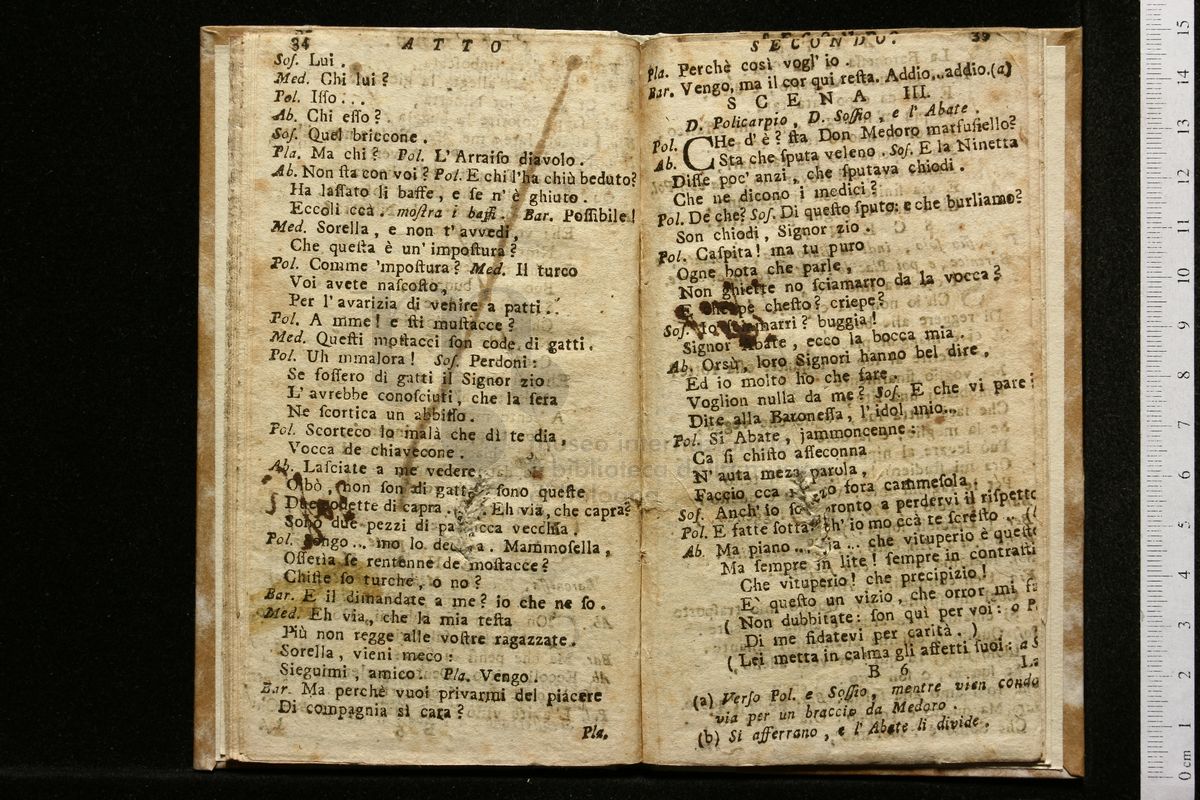 34 ATTO
Soſ. Lui.
Med. Chi lui?
Pol. Iſſo...
Ab. Chi eſſo?
Soſ. Quel briccone.
Pla. Ma chi? Pol. L'Arraiſo diavolo.
Ab. Non ſta con voi? Pol. E chi l'ha chiù beduto?
Ha laſſato li baffe, e ſe n'è ghiuto.
Eccoli ccà. moſtra i baffi. Bar. Poſſibile!
Med. Sorella, e non t'avvedi,
Che queſta è un'impoſtura?
Pol. Comme 'mpoſtura? Med. Il turco
Voi avete naſcoſto,
Per l'avarizia di venire a patti.
Pol. A mme! e ſti muſtacce?
Med. Queſti moſtacci ſon code di gatti.
Pol. Uh mmalora! Soſ. Perdoni:
Se foſſero di gatti il Signor zio
L'avrebbe conoſciuti, che la ſera
Ne ſcortica un abbiſſo.
Pol. Scorteco lo malà che dì te dia,
Vocca de chiavecone.
Ab. Laſciate a me vedere
Oibò, non ſon di gatt ſono queſte
Due codette di capra. Eh via, che capra?
Sono due pezzi di pa cca vecchia.
Pol. ... mo lo de a. Mammoſella,
Oſſeria ſe rentenne de moſtacce?
Chiſte ſo turche, o no?
Bar. E il dimandate a me? io che ne ſo.
Med. Eh via, che la mia teſta
Più non regge alle voſtre ragazzate.
Sorella, vieni meco:
Sieguimi, amico. Pla. Vengo.
Bar. Ma perchè vuoi privarmi del piacere
Di compagnia sì cara?
Pla.
SECONDO. 39
Pla. Perchè così vogl'io.
Bar. Vengo, ma il cor qui reſta. Addio, ..addio.(a)
SCENA III.
D. Policarpio, D. Soſſio, e l'Abate.
Pol. CHe d'è? ſta Don Medoro marfuſiello?
Ab. Sta che ſputa veleno. Soſ. E la Ninetta
Diſſe poc'anzi, che ſputava chiodi.
Che ne dicono i medici?
Pol. De che? Soſ. Di queſto ſputo: e che burliamo?
Son chiodi, Signor zio.
Pol. Caſpita! ma tu puro
Ogne bota che parle,
Non ghiette no ſciamarro da la vocca?
E cheſto? criepe?
Soſ. Io marri? buggia!
Signor Abate, ecco la bocca mia.
Ab. Orsù, loro Signori hanno bel dire,
Ed io molto ho che fare.
Voglion nulla da me? Soſ. E che vi pare:
Dite alla Baroneſſa, l'idol mio...
Pol. Si Abate, jammoncenne:
Ca ſi chiſto aſſeconna
N'auta meza parola,
Faccio cca zo fora cammeſola.
Soſ. Anch'io ſo ronto a perdervi il riſpetto
Pol. E fatte ſotta ch'io mo ccà te ſcreſto..
Ab. Ma piano... ... che vituperio è queſto
Ma ſempre in lite! ſempre in contraſti
Che vituperio! che precipizio!
E' queſto un vizio, che orror mi fa
( Non dubbitate: ſon quì per voi: a P.
Di me fidatevi per carità. )
( Lei metta in calma gli affetti ſuoi: a S
B 6 La
(a) Verſo Pol. e Soſſio, mentre vien condo
via per un braccio da Medoro.
(b) Si afferrano, e l'Abate li divide.